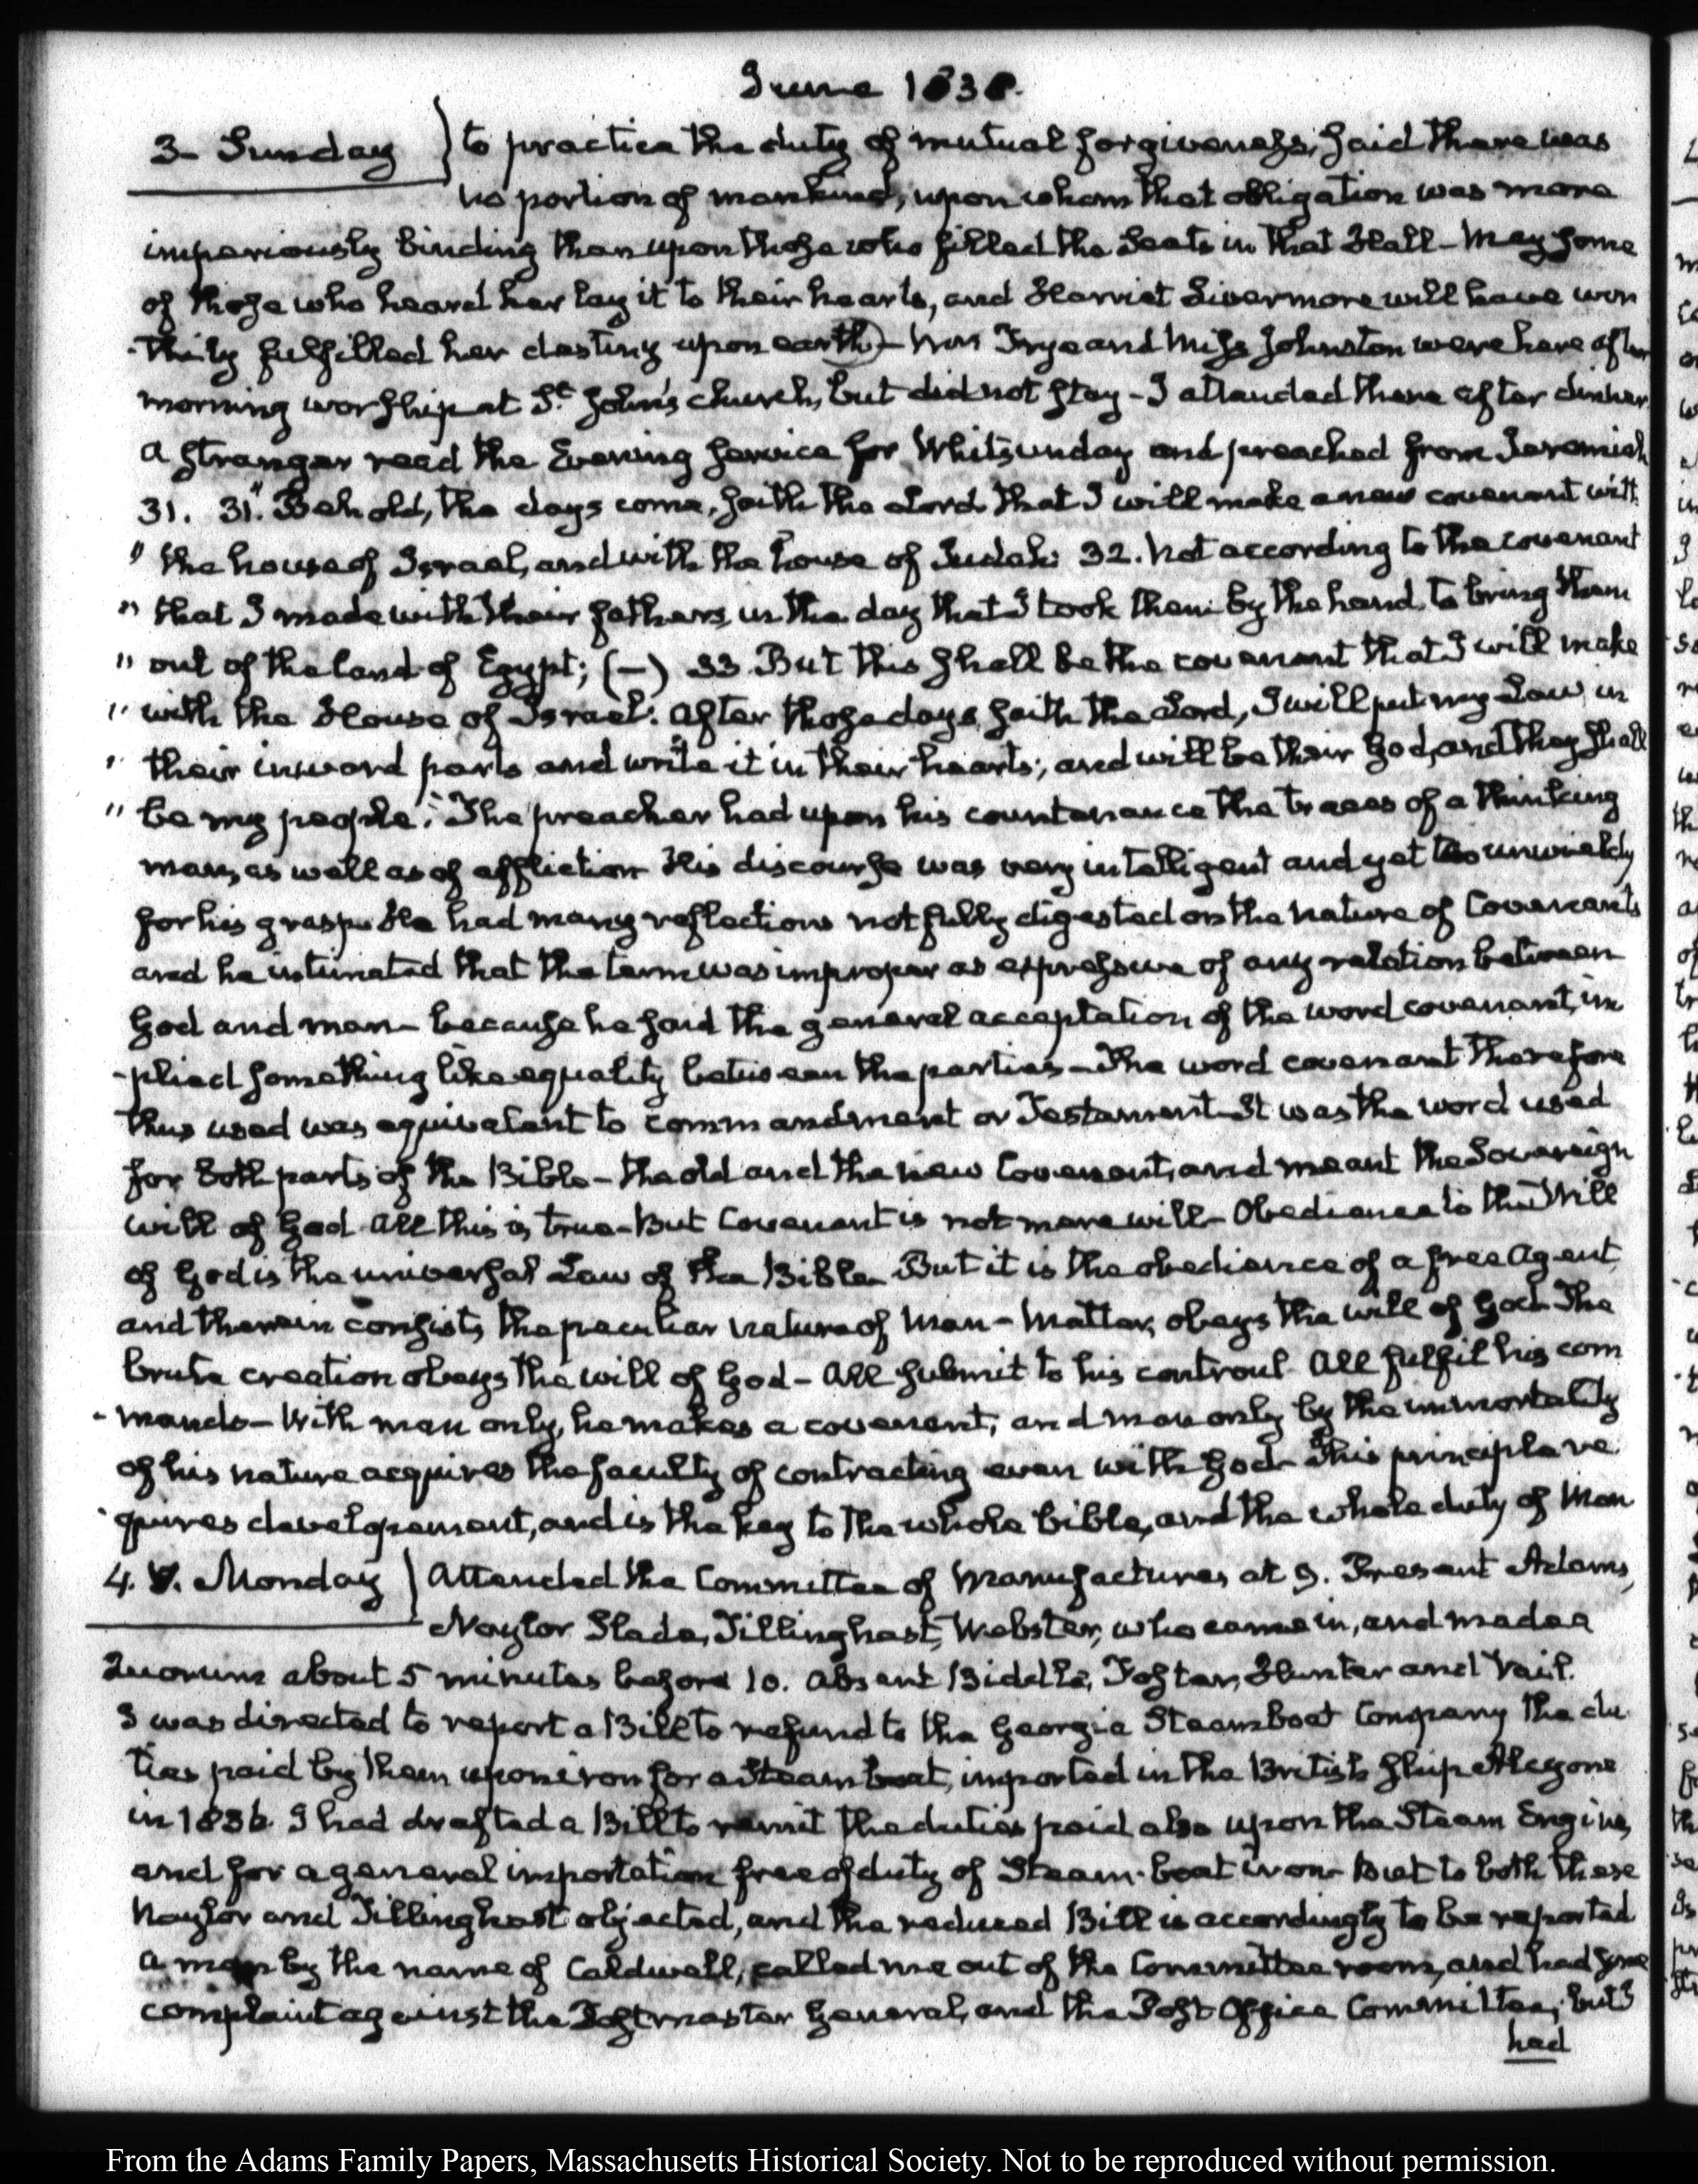 June 1838.
3- Sunday } to practice the duty of mutual forgiveness, said there was
no portion of mankind, upon whom that obligation was more
imperiously binding than upon those who filled the Seats in that Hall – May some
of those who heard her lay it to their hearts, and Harriet Livermore will have wor
-thily fulfilled her destiny upon earth – Mrs Frye and Miss Johnston were here after
morning worship at St. John's church, but did not stay – I attended there after dinner
a stranger read the Evening service for Whitsunday and preached from Jeremiah
31. 31. "Behold, the days come, saith the Lord that I will make a new covenant with
" the house of Israel, and with the house of Judah: 32. Not according to the covenant
" that I made with their fathers, in the day that I took them by the hand to bring them
" out of the land of Egypt; (—) 33 But this shall be the covenant that I will make
" with the House of Israel: after those days, saith the Lord, I will put my Law in
" their inward parts and write it in their hearts; and will be their God, and they shall
" be my people." The preacher had upon his countenance the traces of a thinking
man, as well as of affliction His discourse was very intelligent and yet too unwieldy
for his grasp. He had many reflections not fully digested on the nature of Covenants
and he intimated that the term was improper as expressive of any relation between
God and man – because he said the general acceptation of the word covenant, im
-plied something like equality between the parties – The word covenant therefore
thus used was equivalent to commandment or Testament – It was the word used
for both parts of the Bible – the old and the new Covenant, and meant the Sovereign
will of God All this is true – But Covenant is not mere will – Obedience to the Will
of God is the universal Law of the Bible But it is the obedience of a free agent
and therein consists, the peculiar nature of Man – Matter, obeys the will of God – The
brute creation obeys the will of God – All submit to his controul – All fulfil his com
-mands – With man only, he makes a covenant, and man only by the immortality
of his nature acquires the faculty of contracting even with God – This principle re
-quires developement, and is the key to the whole bible, and the whole duty of Man
4. V. Monday } Attended the Committee of Manufactures, at 9. Present Adams,
Naylor Slade, Tillinghast, Webster, who came in, and made a
Quorum about 5 minutes before 10. Absent Biddle, Foster, Hunter and Vail.
I was directed to report a Bill to refund to the Georgia Steamboat Company the du
ties paid by them upon iron for a Steam boat, imported in the British ship Alcyone
in 1836. I had drafted a Bill to remit the duties paid also upon the Steam Engine,
and for a general importation free of duty of Steam-boat iron – But to both these
Naylor and Tillinghast objected, and the reduced Bill is accordingly to be reported
a man by the name of Caldwell, called me out of the Committee room, and had some
complaint against the Postmaster General, and the Post-Office Committee; but I
had
From the Adams Family Papers, Massachusetts Historical Society. Not to be reproduced without permission.